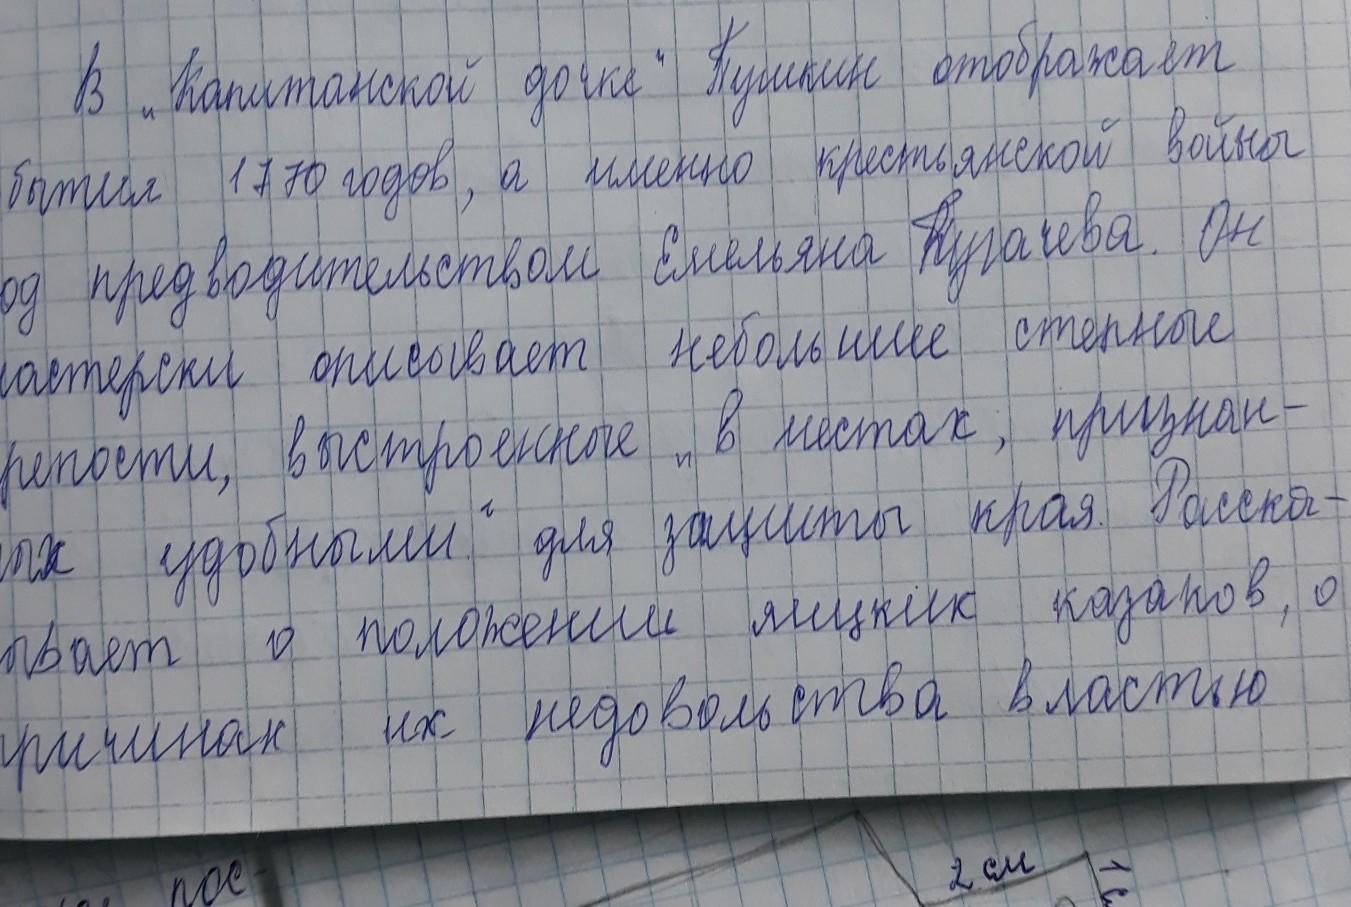 В „Капитанской дочке“ Пушкин отображает
бытия 1770 годов, а именно крестьянской войны
од предводительством Емельяна Пугачева. Он
астерски описывает небольшие степные
репости, выстроенные „в местах, признан-
ых удобными“ для защиты края. Расска-
ывает о положении яицких казаков, о
ричинах их недовольства властью
пос-
2 см